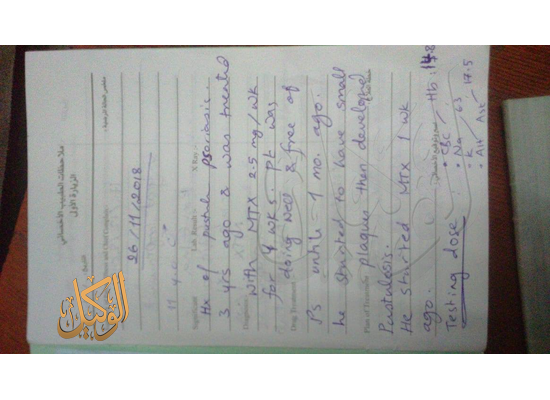 ملاحظات الطبيب الأخصائي
الزيارة الأولى
26/11/2018
11 y.o. ♂
Hx of pustular psoriasis.
3 yrs ago & was treated
with MTX 2.5 mg/wk
for 4 wks. Pt was
doing well & free of
Ps until 1 mo. ago.
he started to have small
plaques then developed
Pustulosis.
He started MTX 1 wk
ago.
Testing dose
• CBC Hb: 14.8
• Na 63
• K
• Alt Ast 17.5
Lab. Results
X Ray
Drug Treatment
Plan of Treatment
الوكيل